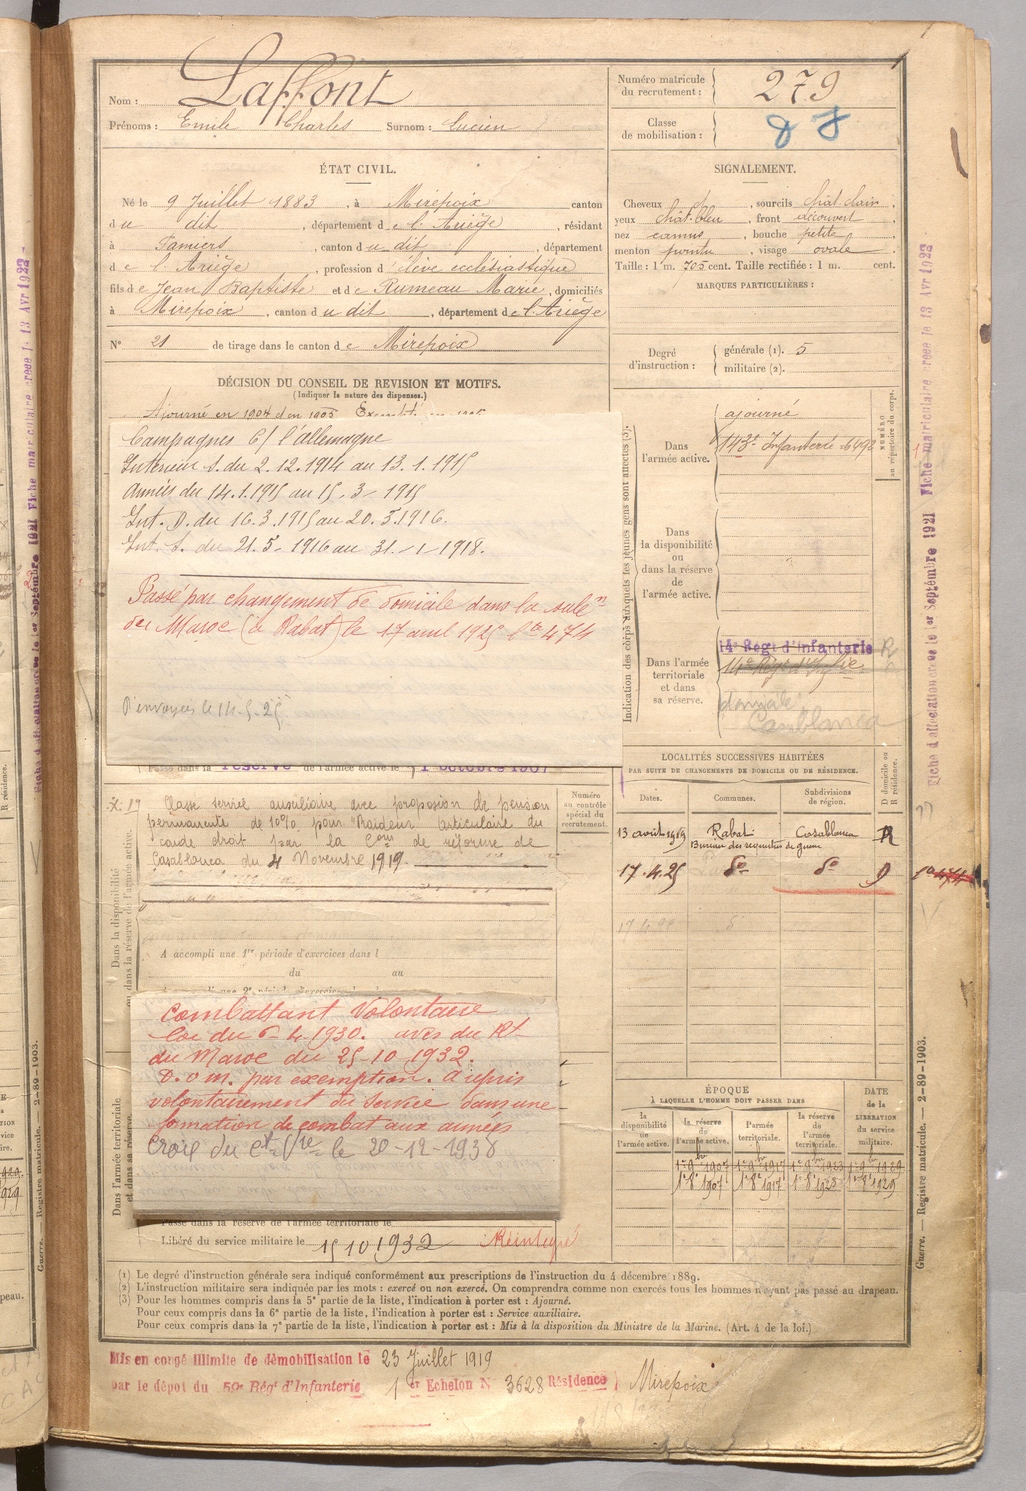 Nom : Laffont
Prénoms : Emile Charles Surnom : Lucien
Numéro matricule du recrutement : 279
Classe de mobilisation :
ÉTAT CIVIL.
Né le 9 Juillet 1883, à Mirepoix canton
du dit, département de l'Ariège, résidant
à Pamiers, canton du dit, département
de l'Ariège, profession d'élève ecclésiastique
fils de Jean Baptiste et de Rumeau Marie, domiciliés
à Mirepoix, canton du dit, département de l'Ariège
N° 21 de tirage dans le canton de Mirepoix
SIGNALEMENT.
Cheveux, sourcils chât. clair
yeux chât. bleu, front découvert
nez camus, bouche petite
menton pointu, visage ovale
Taille : 1 m. 705 cent. Taille rectifiée : 1 m. cent.
MARQUES PARTICULIÈRES :
Degré d'instruction : générale (1). 5
militaire (2).
DÉCISION DU CONSEIL DE REVISION ET MOTIFS.
(Indiquer la nature des dispenses.)
Ajourné en 1904 et en 1905
Campagnes C/ l'allemagne
Intérieur S. du 2.12.1914 au 13.1.1915
Armées du 14.1.1915 au 15.3.1915
Int. D. du 16.3.1915 au 20.5.1916.
Int. S. du 21.5.1916 au 31.1.1918.
Passé par changement de domicile dans la subon
du Maroc (à Rabat) le 17 avril 1925
envoyée le 14.5.25
réserve de l'armée active le 1 octobre 1907
Indication des corps auxquels les jeunes gens sont affectés (3).
NUMÉRO au répertoire du corps.
Dans l'armée active.
ajourné
143e Infanterie
Dans la disponibilité ou dans la réserve de l'armée active.
Dans l'armée territoriale et dans sa réserve.
14e Régt d'Infanterie
14e Régt d'Infie
Casablanca
Classé service auxiliaire avec proposition de pension
permanente de 10% pour "Raideur articulaire du
coude droit par la Com de réforme de
Casablanca du 4 Novembre 1919.
Numéro au contrôle spécial du recrutement.
LOCALITÉS SUCCESSIVES HABITÉES
PAR SUITE DE CHANGEMENTS DE DOMICILE OU DE RÉSIDENCE.
Dates. Communes. Subdivisions de région. D domicile ou R résidence.
13 août 1919 Rabat Casablanca R
Bureau des requêtes de guerre
17.4.25 do do D
Dans la disponibilité ou dans la réserve de l'armée active.
A accompli une 1re période d'exercices dans l
du au
Combattant Volontaire
Loi du 6-4-1930. avis du
du Maroc du 25-10-1932.
D.O.M. par exemption. a
volontairement du service dans une
formation de combat aux armées
Croix du Ct Vre le 20-12-1938
Dans l'armée territoriale et dans sa réserve.
Passé dans la réserve de l'armée territoriale le
Libéré du service militaire le 15 10 1932 Réintégré
ÉPOQUE
À LAQUELLE L'HOMME DOIT PASSER DANS
la disponibilité de l'armée active. la réserve de l'armée active. l'armée territoriale. la réserve de l'armée territoriale.
DATE de la LIBÉRATION du service militaire.
(1) Le degré d'instruction générale sera indiqué conformément aux prescriptions de l'instruction du 4 décembre 1889.
(2) L'instruction militaire sera indiquée par les mots : exercé ou non exercé. On comprendra comme non exercés tous les hommes n'ayant pas passé au drapeau.
(3) Pour les hommes compris dans la 5e partie de la liste, l'indication à porter est : Ajourné.
Pour ceux compris dans la 6e partie de la liste, l'indication à porter est : Service auxiliaire.
Pour ceux compris dans la 7e partie de la liste, l'indication à porter est : Mis à la disposition du Ministre de la Marine. (Art. 4 de la loi.)
Mis en congé illimité de démobilisation le 23 Juillet 1919
par le dépôt du 59e Régt d'Infanterie 1er Echelon N 3628 Résidence Mirepoix
Guerre. — Registre matricule. — 2-89-1903.
Fiche d'affectation créée le 1er Septembre 1921 Fiche matriculaire créée le 13 Avr 1922